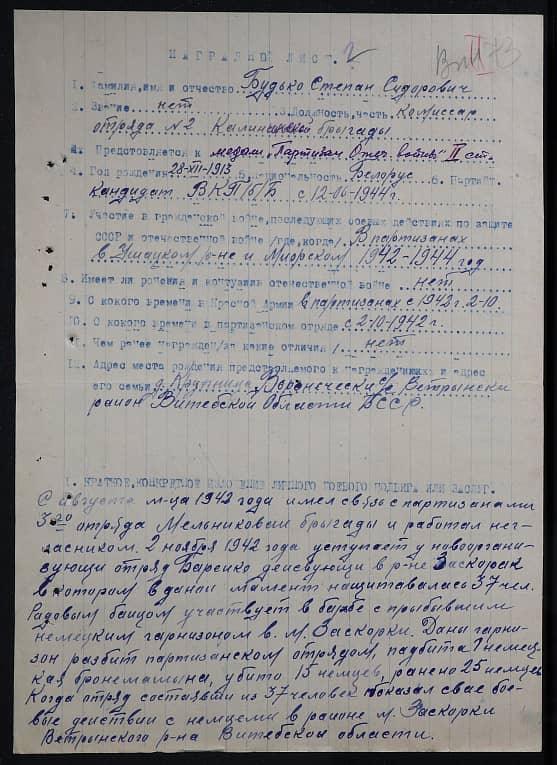 НАГРАДНОЙ ЛИСТ. 2
II
1. Фамилия, имя и отчество Будько Степан Сидорович
2. Звание нет 3. Должность, часть Комиссар
отряда №2 Калининской бригады
4. Представляется к медали „Партизан Отеч. войны" II ст.
4. Год рождения 28-XII-1913 5. Национальность Белорус 6. Партийт.
кандидат ВКП/б/Б с 12-06-1944г.
7. Участие в гражданской войне, последующих боевых действиях по защите
СССР и отечественной войне /где, когда/. В партизанах
в Ушацком р-не и Миорском 1942-1944 год
8. Имеет ли ранения и контузии отечественной войне нет
9. С какого времени в Красной Армии в партизанах с 1942г. 2-10.
10. С какого времени в партизанском отряде с 2-10-1942г.
11. Чем ранее награжден /за какие отличия/. нет
12. Адрес места рождения представляемого к награждению и адрес
его семьи д. Воронечский с/с Ветрински
район Витебской Области БССР.
1. КРАТКОЕ, КОНКРЕТНОЕ ИЗЛОЖЕНИЕ ЛИЧНОГО БОЕВОГО ПОДВИГА ИЛИ ЗАСЛУГ.
С августа м-ца 1942 года имел связь с партизанами
3го отряда Мельниковой бригады и работал нег-
ласником. 2 ноября 1942 года уступает у новооргани-
зующи отряд Барсико дейсвующи в р-не Заскорак
в котором в данои момент нащитавалась 37 чел.
Радовым байцом участвует в барбе с прыбывшим
немецким гарнизоном в. м. Заскорки. Даны гарни-
зон разбит партизанском отрядом, падбита 1 немец-
кая бронемашына, убито 15 немцев, ранено 25 немцев
Когда отряд состаявши из 37 человек показал свае бое-
вые действии с немцеми в раионе м. Заскорки
Ветрынского р-на Витебской области.